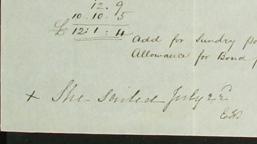 12.9
10.10.5
£ 12:1:4
Add for Sundry
Allowance for Bond
+ She Sailed July 22